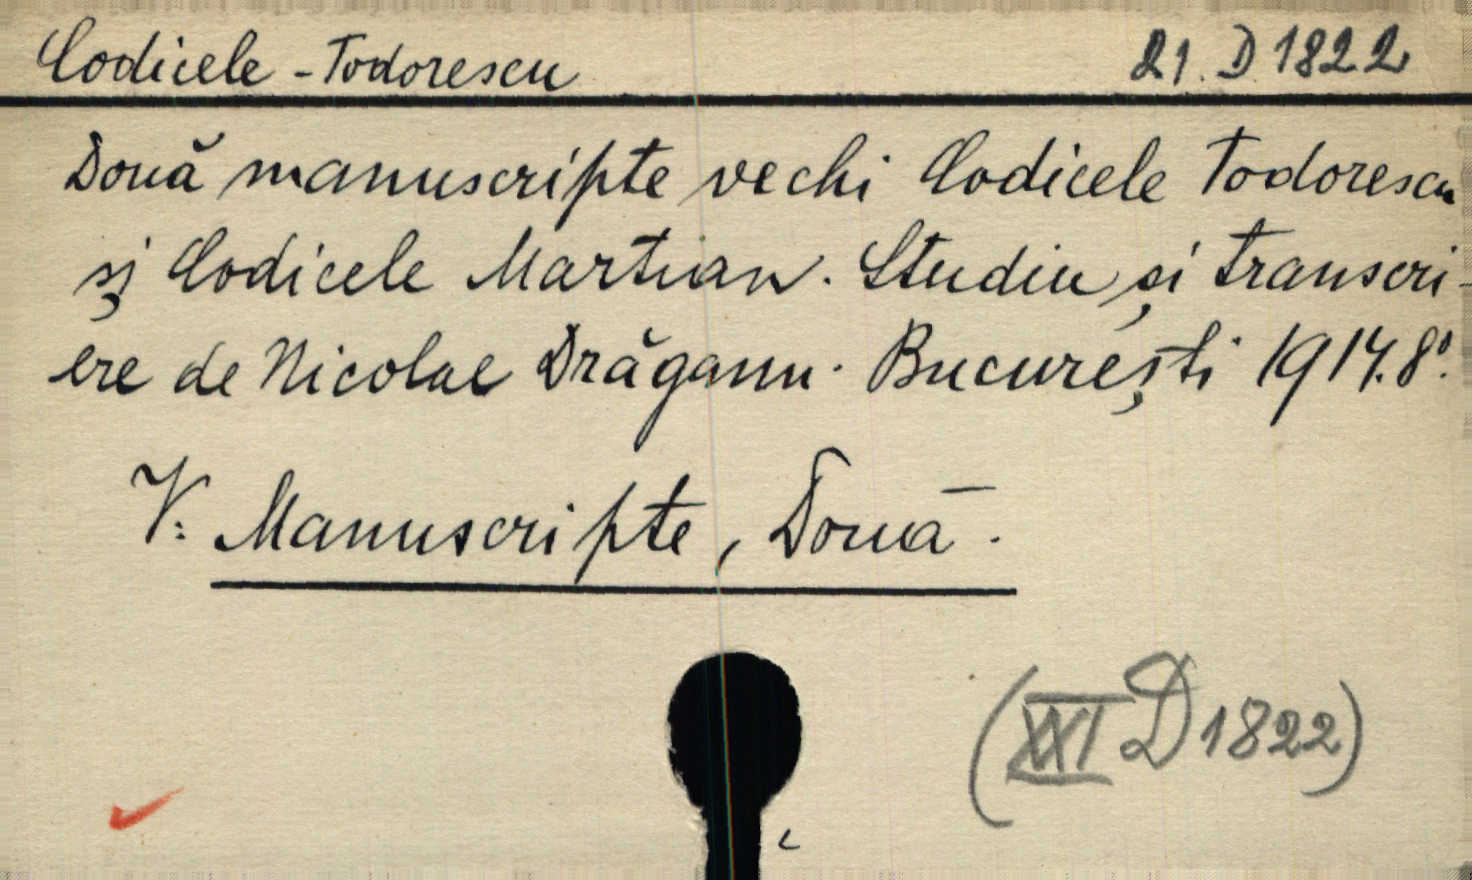 Codicele - Todorescu 21. D 1822
Două manuscripte vechi Codicele Todorescu
și Codicele Martian. Studiu și transcri-
ere de Nicolae Drăganu. București 1914. 8°.
V: Manuscripte, Douā.
(XXI D 1822)